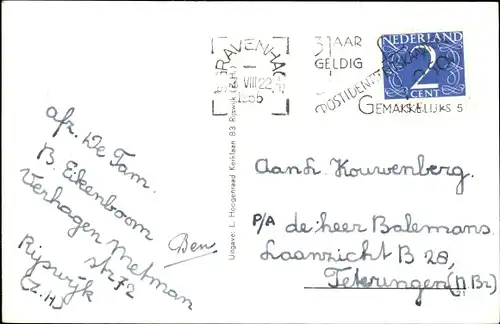 'S GRAVENHAGE
VIII 22
1955
3 JAAR
GELDIG
POSTIDENTITEITSKAART
GEMAKKELIJK
NEDERLAND
2
CENT
afz. De Fam.
B. Eikenboom
Verhagen Metman
str 72
Rijswijk
(Z.H)
Ben.
Uitgave: L. Hoogenraad Kerklaan 83 Rijswijk (Z.H.)
Aan h. Kouwenberg.
P/A de heer Balemans.
Laanzicht B 28,
Teteringen (N.Br)